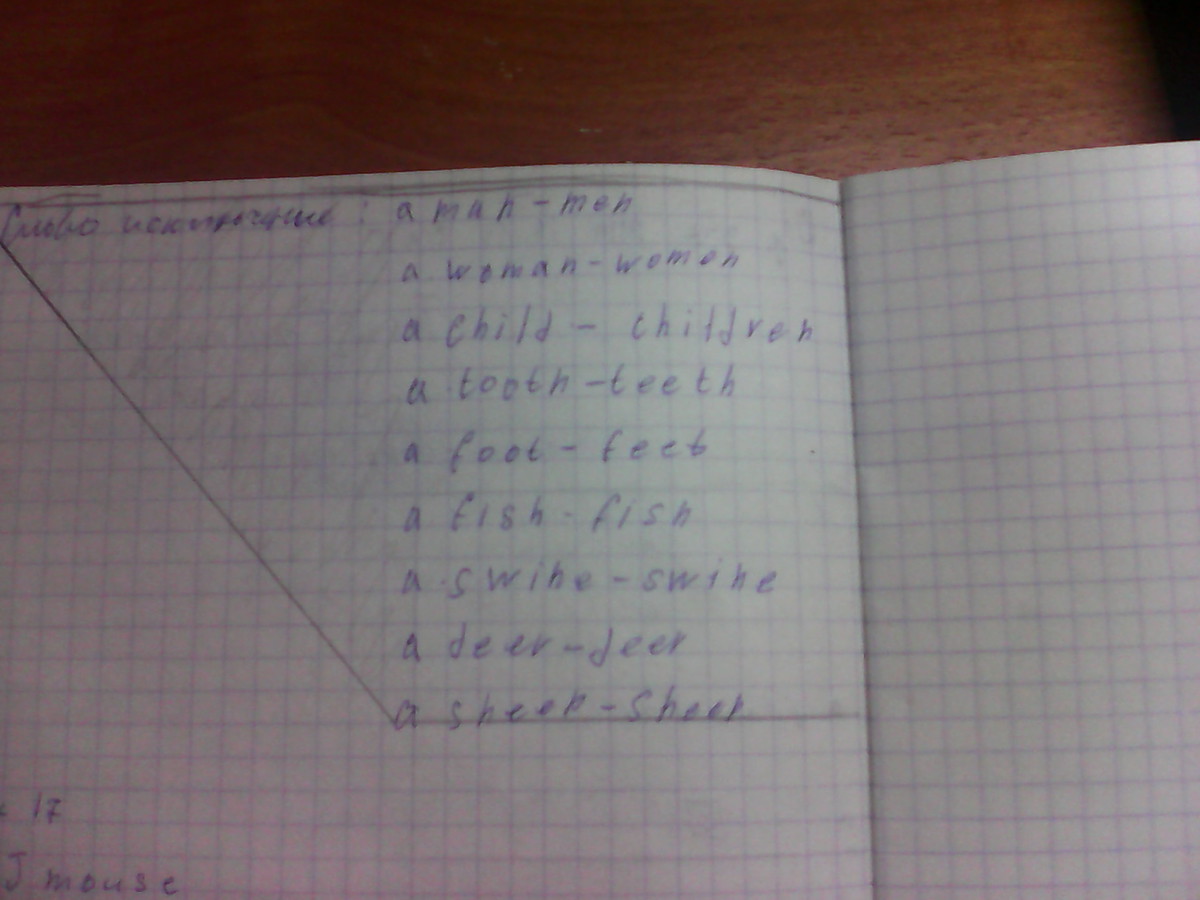 Слово исключение : a man - men
a woman - women
a child - children
a tooth - teeth
a foot - feet
a fish - fish
a swine - swine
a deer - deer
a sheep - sheep
17
J mouse